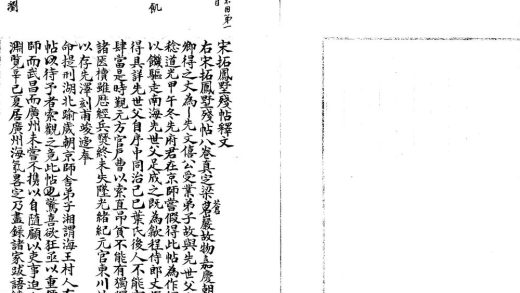 宋拓鳳墅殘帖釋文
右宋拓鳳墅殘帖八卷真定梁蒼巖故物嘉慶朝
鄉得之文為一先文僖公受業弟子故與先世父
稔道光甲午冬先府君在京師嘗假得此帖為作
以饑驅走南海先世父足成之既為歙程侍郎文
得具詳先世父自序中同治己巳葉氏後人不能
肆當是時觀元方官戶曹以索直昂貧不能有獨
諸匧櫝雖歷經兵燹終未失墜光緒紀元官東川
以存先澤刻甫竣適奉
命提刑湖北瑜歲朝京師舍弟子湘謂海王村人
帖以待予者索觀之竟此帖也驚喜欲狂亟以重
師而武昌而廣州未嘗不攜以自隨顧以吏事
瀏覽辛巳夏居廣州海氣
乃盡錄諸家跋語
劉